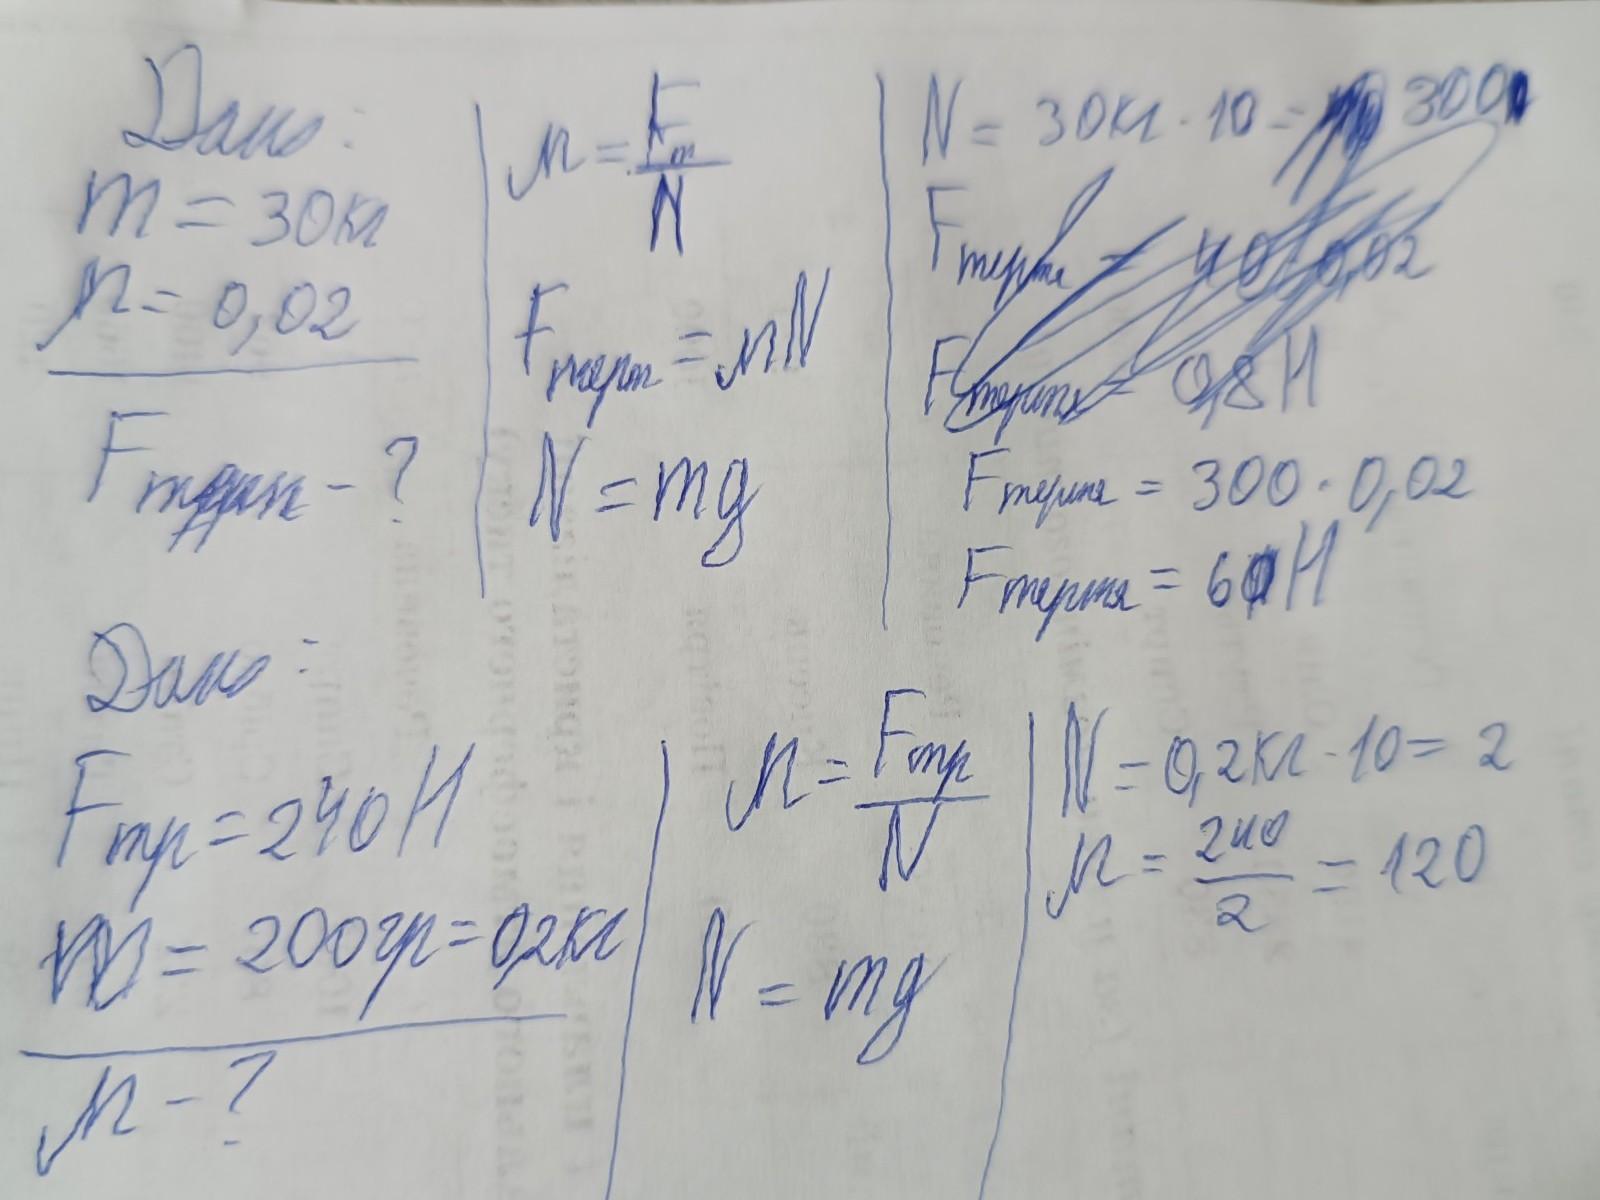 Дано:
m = 30кг
μ = 0,02
Fтертя - ?
μ = Fт/N
Fтерт = μN
N = mg
N = 30кг · 10 = 300
Fтертя = 40 · 0,02
Fтертя = 0,8 Н
Fтертя = 300 · 0,02
Fтертя = 6 Н
Дано:
Fтр = 240 Н
m = 200гр = 0,2кг
μ - ?
μ = Fтр/N
N = mg
N = 0,2кг · 10 = 2
μ = 240/2 = 120